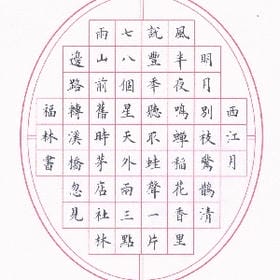 西江月
明月別枝驚鵲清
風半夜鳴蟬稻花香里
説豐秊聽取蛙聲一片
七八個星天外兩三點
雨山前舊時茅店社林
邊路轉溪橋忽見
福林書